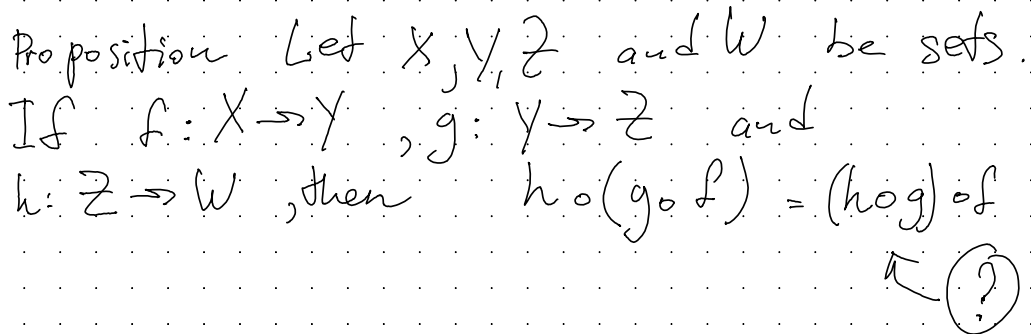 Proposition Let X, Y, Z and W be sets.
If f: X → Y, g: Y → Z and
h: Z → W, then h∘(g∘f) = (h∘g)∘f
← ?